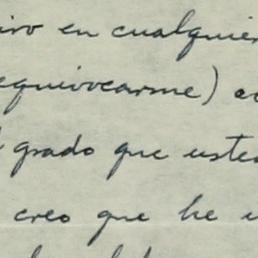 iro en cualquier
equivocarme)
grado que uste
creo que he